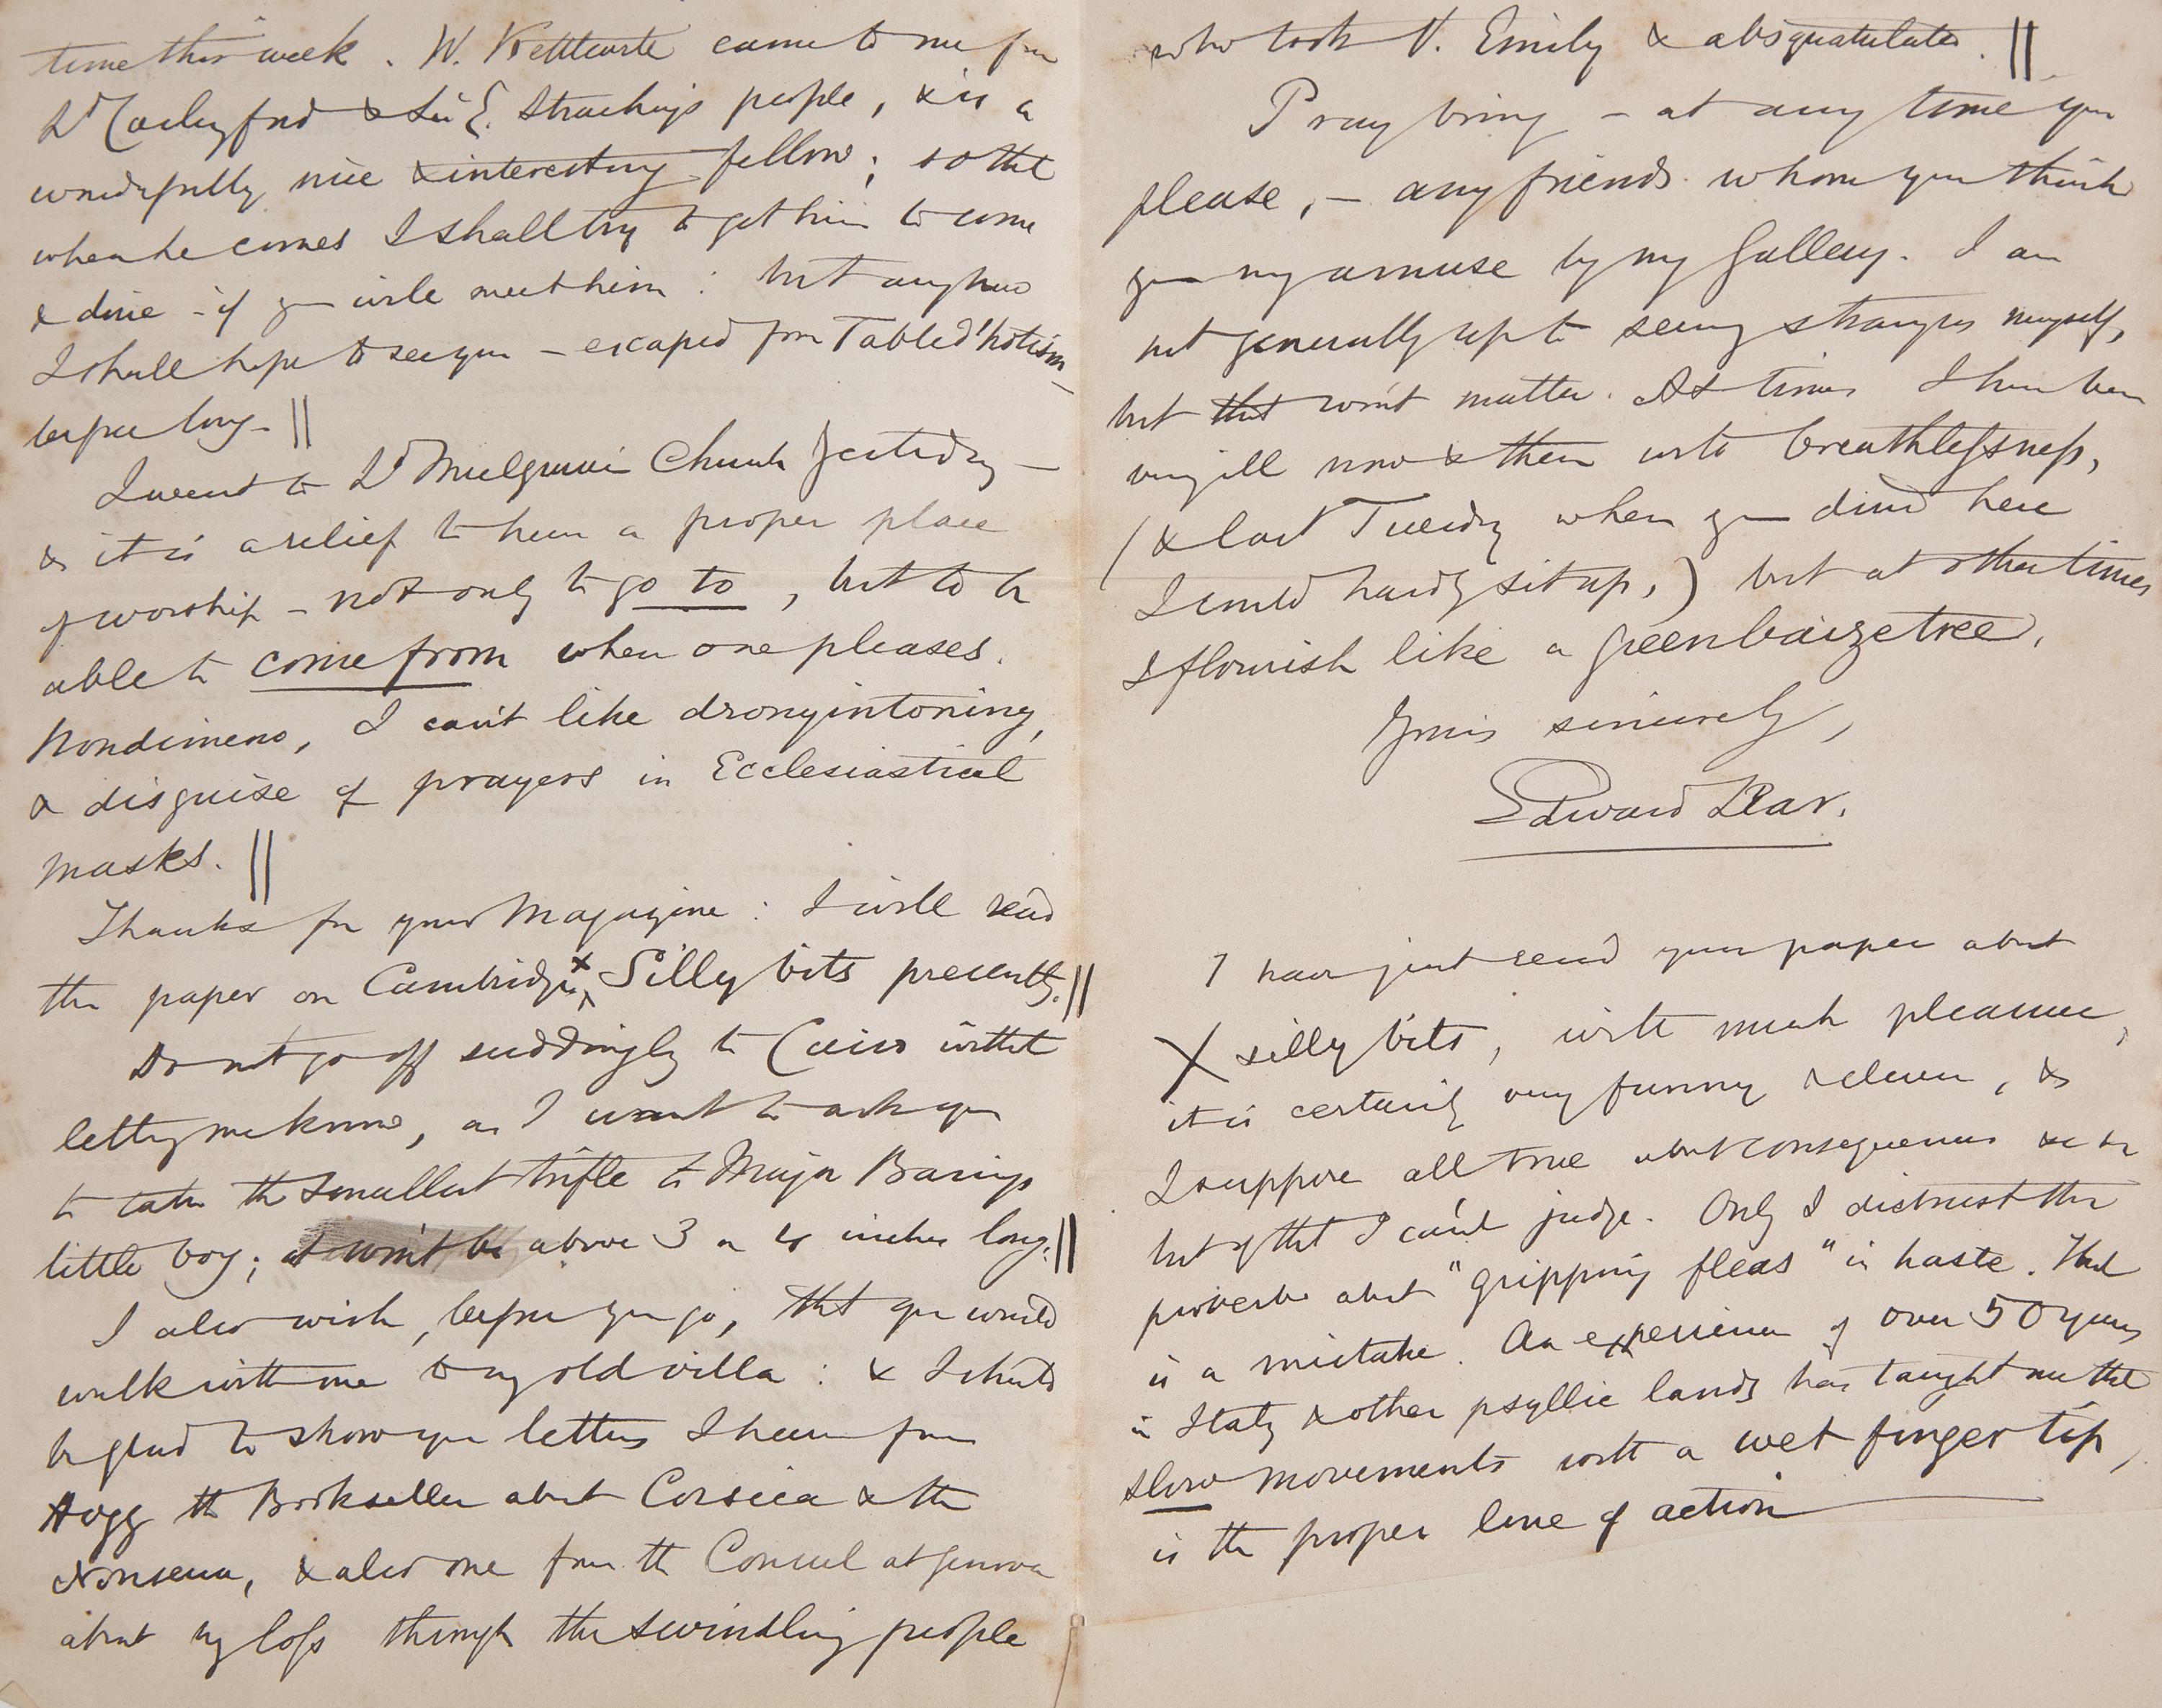 time this week. W. Kettlewell came to me from
Ld Carlingford & Sir E. Strachey's people, & is a
wonderfully nice & interesting fellow; so that
when he comes I shall try to get him to come
& dine - if you will meet him: but anyhow
I shall hope to see you - escaped from Table d'hotism -
before long. ||
I went to Ld Mulgrave's Church yesterday -
& it is a relief to have a proper place
of worship - not only to go to, but to be
able to come from when one pleases.
Nondimeno, I can't like dronyintoning,
& disguise of prayers in Ecclesiastical
masks. ||
Thanks for your Magazine: I will read
the paper on Cambridge X Silly bits presently. ||
Do not go off suddingly to Cairo without
letting me know, as I want to ask you
to take the smallest trifle to Major Baring's
little boy; it won't be above 3 or 4 inches long. ||
I also wish, before you go, that you would
walk with me to my old villa: & I should
be glad to show you letters I have from
Hogg the Bookseller about Corsica & the
Nonsense, & also one from the Consul at Genova
about my loss through the swindling people
who took V. Emily & absquatulated. ||
Pray bring - at any time you
please, - any friends whom you think
you may amuse by my Gallery. I am
not generally up to seeing strangers myself,
but that won't matter. At times I have been
very ill now & then with breathlessness,
(& last Tuesday when you dined here
I could hardly sit up,) but at other times
I flourish like a greenbaizetree.
Yours sincerely,
Edward Lear.
I have just read your paper about
X silly bits, with much pleasure,
it is certainly very funny & clever, &
I suppose all true about consequences &c &c
but of that I can't judge. Only I distrust the
proverb about "gripping fleas" in haste. That
is a mistake. An experience of over 50 years
in Italy & other psyllic lands has taught me that
slow movements with a wet finger tip,
is the proper line of action